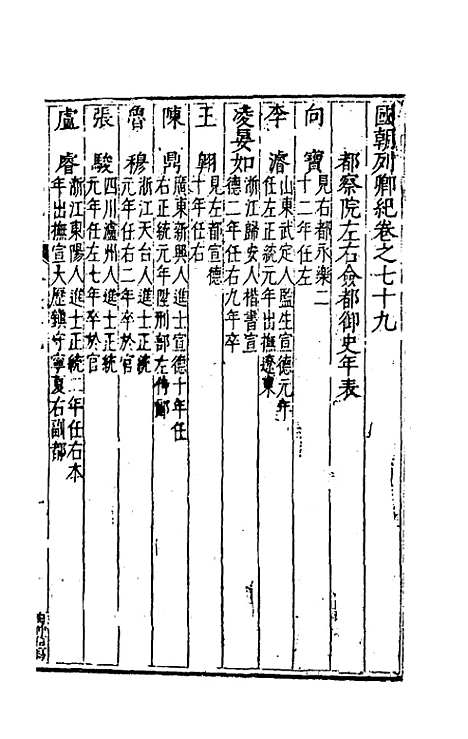 國朝列卿紀卷之七十九
都察院左右僉都御史年表
向寶 見右都永樂二十二年任左
李濬 山東武定人監生宣德元年任左正統元年出撫遼東
凌晏如 浙江歸安人楷書宣德二年任右九年卒
王翱 見左都宣德十年任右
陳鼎 廣東新興人進士宣德十年任右正統元年陞刑部左侍郎
魯穆 浙江天台人進士正統元年任右二年卒於官
張駿 四川瀘州人進士正統元年任左七年卒於官
盧睿 浙江東陽人進士正統二年任右本年出撫宣大歷鎮守寧夏右副都